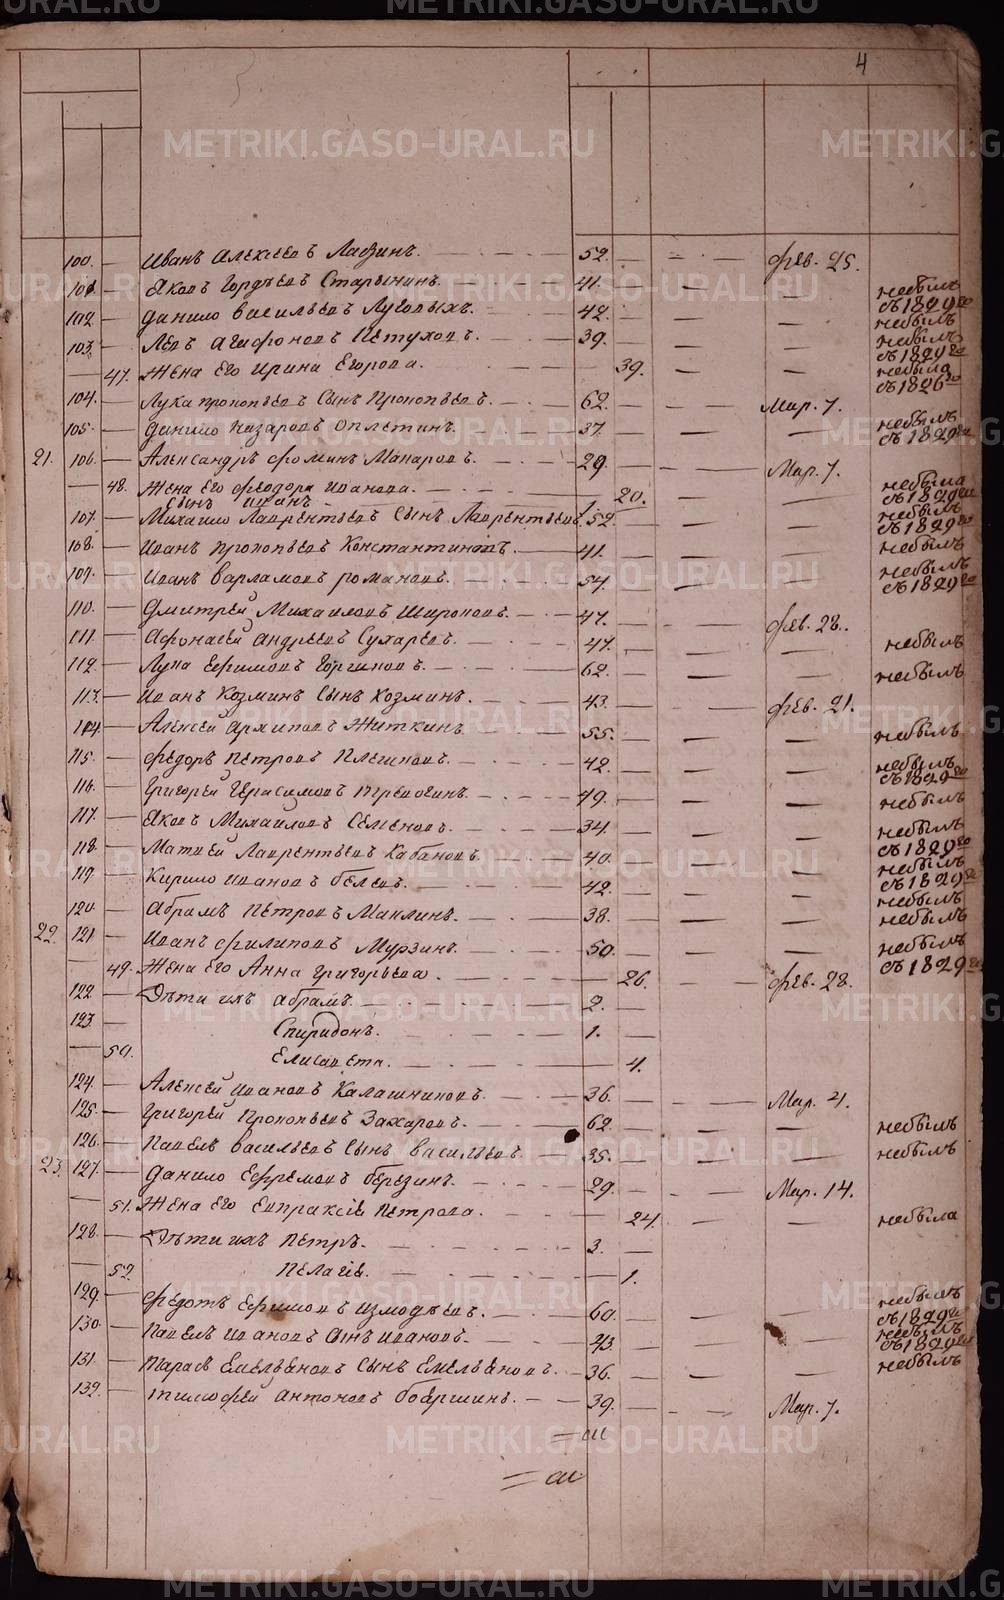 4
100. — Иванъ Алексѣевъ Лабзинъ. 52. — — — фев. 25.
101. — Яковъ Гордѣевъ Старынинъ. 41. — — — небылъ съ 1829го
102. — Данило Васильевъ Луговыхъ. 42. — — — небылъ
103. — Левъ Агафоновъ Петуховъ. 39. — — — небылъ съ 1829го
— 47. Жена его Ирина Егорова. 39. — — небыла съ 1826го
104. — Лука Прокопьевъ Сынъ Прокопьевъ. 62. — — — Мар. 7.
105. — Данило Назаровъ Оплетинъ. 37. — — небылъ съ 1829го
21. 106. — Александръ Фоминъ Макаровъ. 29. — — — Мар. 7.
— 48. Жена его Феодора Иванова. 20. — — небыла съ 1829го
Сынъ Иванъ 1
107. — Михаило Лаврентьевъ Сынъ Лаврентьевъ 52. — — — небылъ съ 1829го
108. — Иванъ Прокопьевъ Константиновъ. 41. — — — небылъ
109. — Иванъ Варламовъ Романовъ. 54. — — — небылъ съ 1829го
110. — Дмитрей Михаиловъ Широковъ. 47. — фев. 28.
111. — Афонасей Андреевъ Сухаревъ. 47. — — — небылъ
112. — Лука Ефимовъ 62. — — — небылъ
113. — Иванъ Козминъ Сынъ Козминъ. 43. — — — фев. 21.
114 — Алексей Архиповъ Житкинъ 55. — — — небылъ
115. — Федоръ Петровъ Плешковъ. 42. — — — небылъ съ 1829го
116. — Григорей Герасимовъ 49. — — — небылъ
117. — Яковъ Михаиловъ Семеновъ. 34. — — — небылъ съ 1829го
118. — Матвей Лаврентьевъ Кабановъ. 40. — — — небылъ съ 1829го
119. — Кирило Ивановъ Белевъ. 42. — — — небылъ
120. — Абрамъ Петровъ Маклинъ. 38. — — — небылъ
22. 121 — Иванъ Филиповъ Мурзинъ. 50. — — — небылъ съ 1829го
— 49. Жена его Анна Григорьева. 26. — — фев. 28.
122 — Дѣти ихъ Абрамъ. 2. —
123 — Спиридонъ. 1. —
— 50. Елисавета. 4.
124. — Алексей Ивановъ Калашниковъ. 36. — — — Мар. 4.
125. — Григорей Прокопьевъ Захаровъ. 62. — — — небылъ
126. — Павелъ Васильевъ Сынъ Васильевъ. 35. — — — небылъ
23. 127. — Данило Ефремовъ Березинъ. 29. — — — Мар. 14.
— 51. Жена его Евпраксіѣ Петрова. 24. — — небыла
128. — Дѣти ихъ Петръ. 3. —
— 52. Пелагіѣ. — 1.
129. — Федотъ Ефимовъ Измодѣевъ. 60. — небылъ съ 1829го
130. — Павелъ Ивановъ Сынъ Ивановъ. 43. — небылъ съ 1829го
131. — Тарасъ Емельяновъ Сынъ Емельяновъ. 36. — — — небылъ
132. — Тимофей Антоновъ Бояршинъ. 39. — — — Мар. 7.